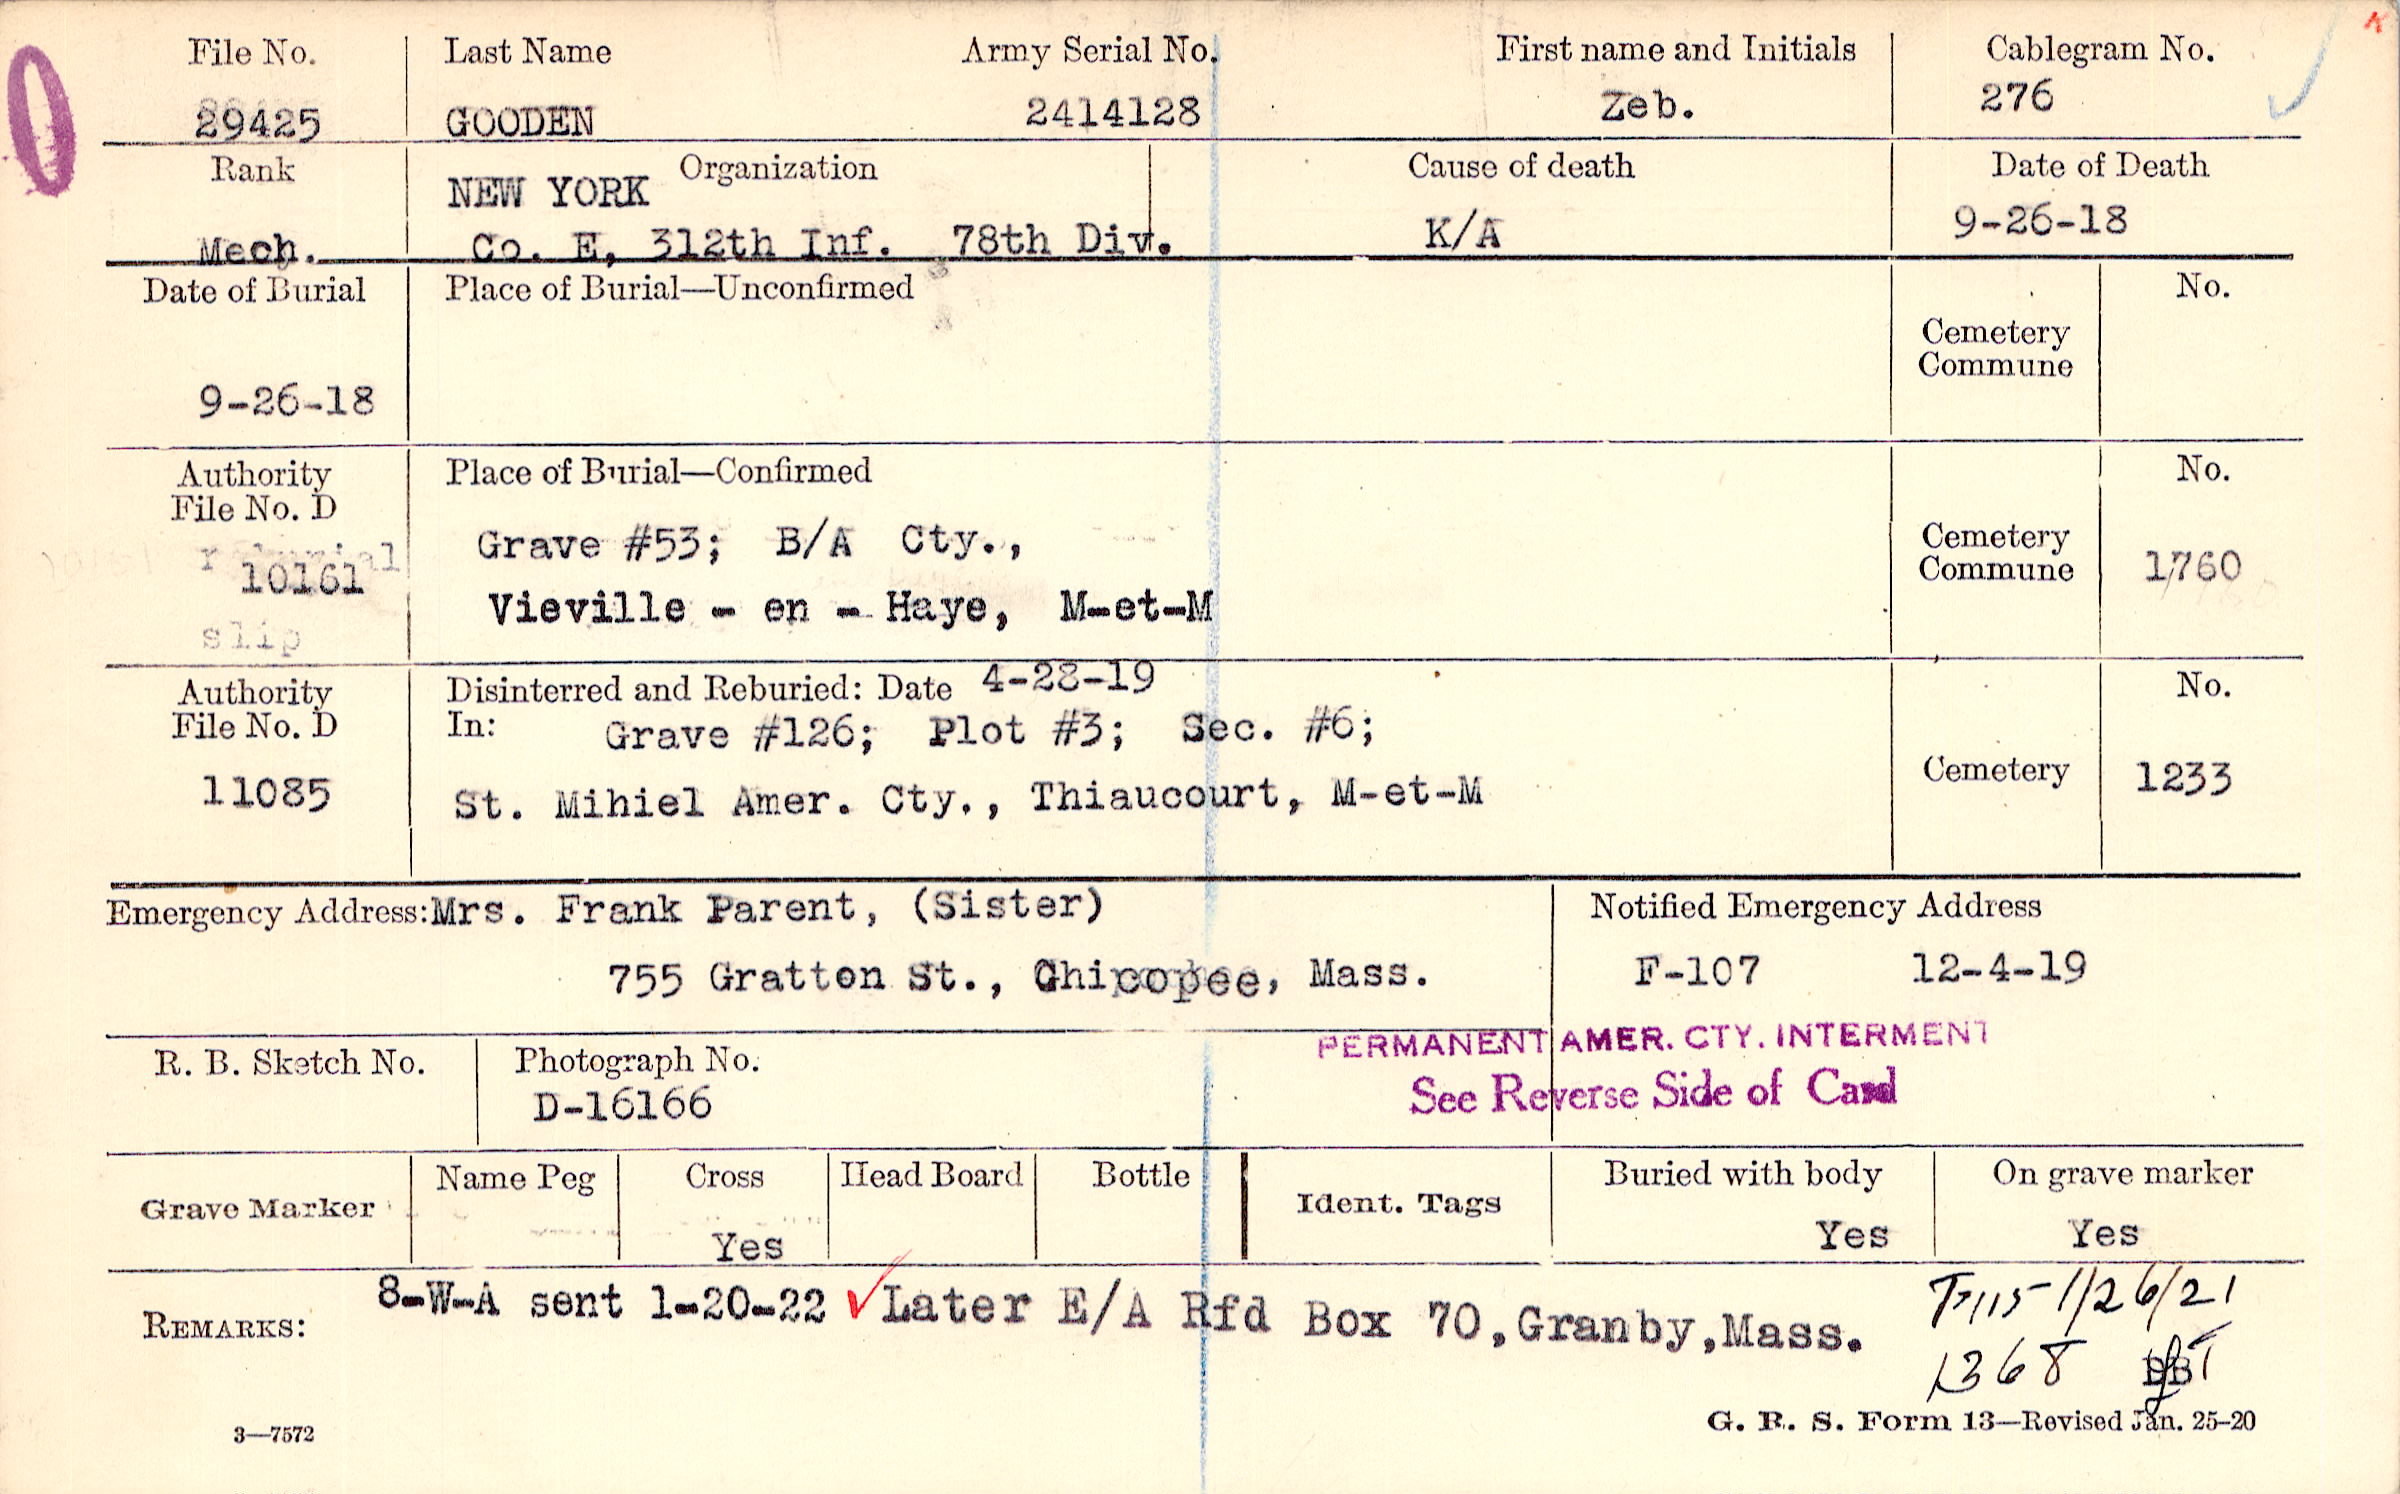 File No. Last Name Army Serial No. First name and Initials Cablegram No.
29425 GOODEN 2414128 Zeb. 276
Rank Organization Cause of death Date of Death
NEW YORK
Mech. Co. E, 312th Inf. 78th Div. K/A 9-26-18
Date of Burial Place of Burial—Unconfirmed No.
Cemetery
Commune
9-26-18
Authority Place of Burial—Confirmed No.
File No. D
10161 Grave #53; B/A Cty., Cemetery
Commune 1760
Vieville - en - Haye, M-et-M
slip
Authority Disinterred and Reburied: Date 4-28-19 No.
File No. D In: Grave #126; Plot #3; Sec. #6;
11085 St. Mihiel Amer. Cty., Thiaucourt, M-et-M Cemetery 1233
Emergency Address: Mrs. Frank Parent, (Sister) Notified Emergency Address
755 Gratton St., Chicopee, Mass. F-107 12-4-19
PERMANENT AMER. CTY. INTERMENT
R. B. Sketch No. Photograph No. See Reverse Side of Card
D-16166
Grave Marker Name Peg Cross Head Board Bottle Ident. Tags Buried with body On grave marker
Yes Yes Yes
REMARKS: 8-W-A sent 1-20-22 Later E/A Rfd Box 70, Granby, Mass. 1/26/21
1368
3—7572 G. R. S. Form 13—Revised Jan. 25-20